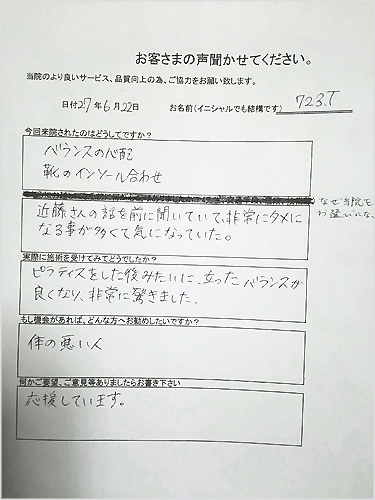 お客さまの声聞かせてください。
当院のより良いサービス、品質向上の為、ご協力をお願い致します。
日付27年6月22日 お名前(イニシャルでも結構です) 723.T
今回来院されたのはどうしてですか？
バランスの心配
靴のインソール合わせ
なぜ当院を
近藤さんの話を前に聞いていて、非常にタメに
なる事が多くて気になっていた。
実際に施術を受けてみてどうでしたか？
ピラティスをした後みたいに、立ったバランスが
良くなり、非常に驚きました。
もし機会があれば、どんな方へお勧めしたいですか？
体の悪い人
何かご要望、ご意見等ありましたらお書き下さい
応援しています。